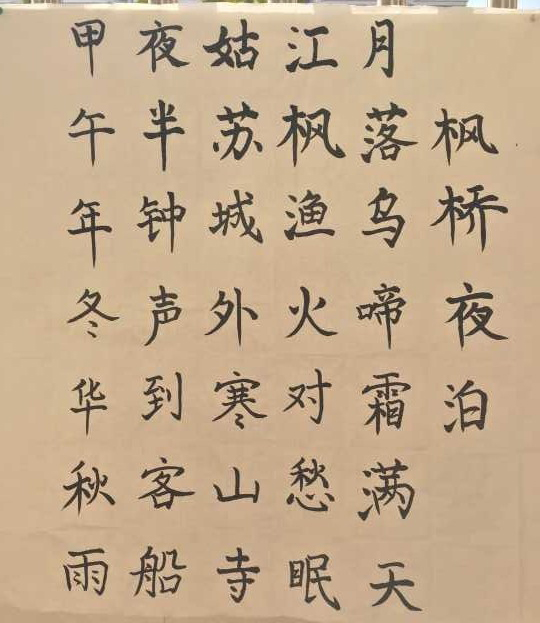 枫桥夜泊
月落乌啼霜满天
江枫渔火对愁眠
姑苏城外寒山寺
夜半钟声到客船
甲午年冬华秋雨